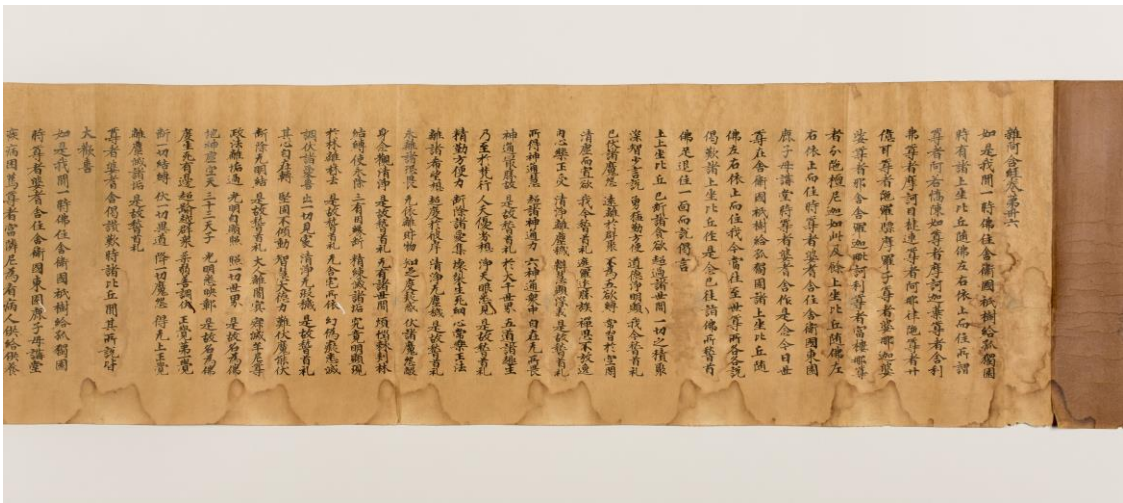 雜阿含經卷第卅六
如是我聞一時佛住舍衛國祇樹給孤獨園
時有諸上坐比丘隨佛左右依止而住所謂
尊者阿若憍陳如尊者摩訶迦葉尊者舍利
弗尊者摩訶目揵連尊者阿那律陁尊者廿
億耳尊者陁羅驃摩羅子尊者婆那迦婆
娑尊者耶舍舍羅迦毗訶利尊者富樓那尊
者分陁檀尼迦如此及餘上坐比丘隨佛左
右依止而住時尊者婆耆舍住舍衛國東園
鹿子母講堂時尊者婆耆舍作是念今日世
尊在舍衛國祇樹給孤獨園諸上坐比丘隨
佛左右依止而住我今當往至世尊所各各說
偈歎諸上坐比丘作是念已往詣佛所稽首
佛足退住一面而說偈言
上上坐比丘 已斷諸貪欲 超過諸世間 一切之積聚
深智少言說 勇猛勤方便 道德淨明顯 我今稽首礼
已伏諸魔怨 遠離於群聚 不為五欲縛 常習於空閑
清虛而寡欲 我今稽首礼 遮羅延勝族 禪思不放逸
內心樂正受 清淨離塵穢 辯慧顯深義 是故稽首礼
所得神通慧 超諸神通力 六神通衆中 自在无所畏
神通最勝故 是故稽首礼 於大千世界 五道諸趣生
乃至於梵行 人天優劣想 淨天眼悉見 是故稽首礼
精勤方便力 斷除諸愛集 壞裂生死網 心常樂正法
離諸希望想 超度於彼岸 清淨无塵穢 是故稽首礼
永離諸恐畏 无依離財物 知足度疑惑 伏諸魔怨敵
身念觀清淨 是故稽首礼 无有諸世間 煩惱棘刺林
結縛使永除 三有因緣斷 精鍊滅諸垢 究竟明顯現
於林離林去 是故稽首礼 无舍宅所依 幻偽癡恚滅
調伏諸愛喜 出一切見處 清淨无瑕穢 是故稽首礼
其心自在轉 堅固不傾動 智慧大德力 難伏魔能伏
斷除无明結 是故稽首礼 大人離闇冥 寂滅牟尼尊
政法離垢過 光明自顯照 照一切世界 是故名為佛
地神虛空天 三十三天子 光明悉映鄣 是故名為佛
度生死有邊 超踰越群衆 柔弱善調伏 正覺第一覺
斷一切結縛 伏一切異道 降一切魔怨 得无上正覺
離塵滅諸垢 是故稽首礼
尊者婆耆舍偈讚歎時諸比丘聞其所說皆
大歡喜
如是我聞一時佛住舍衛國祇樹給孤獨園
時尊者婆耆舍住舍衛國東園鹿子母講堂
疾病困篤尊者富隣尼為看病人供給供養